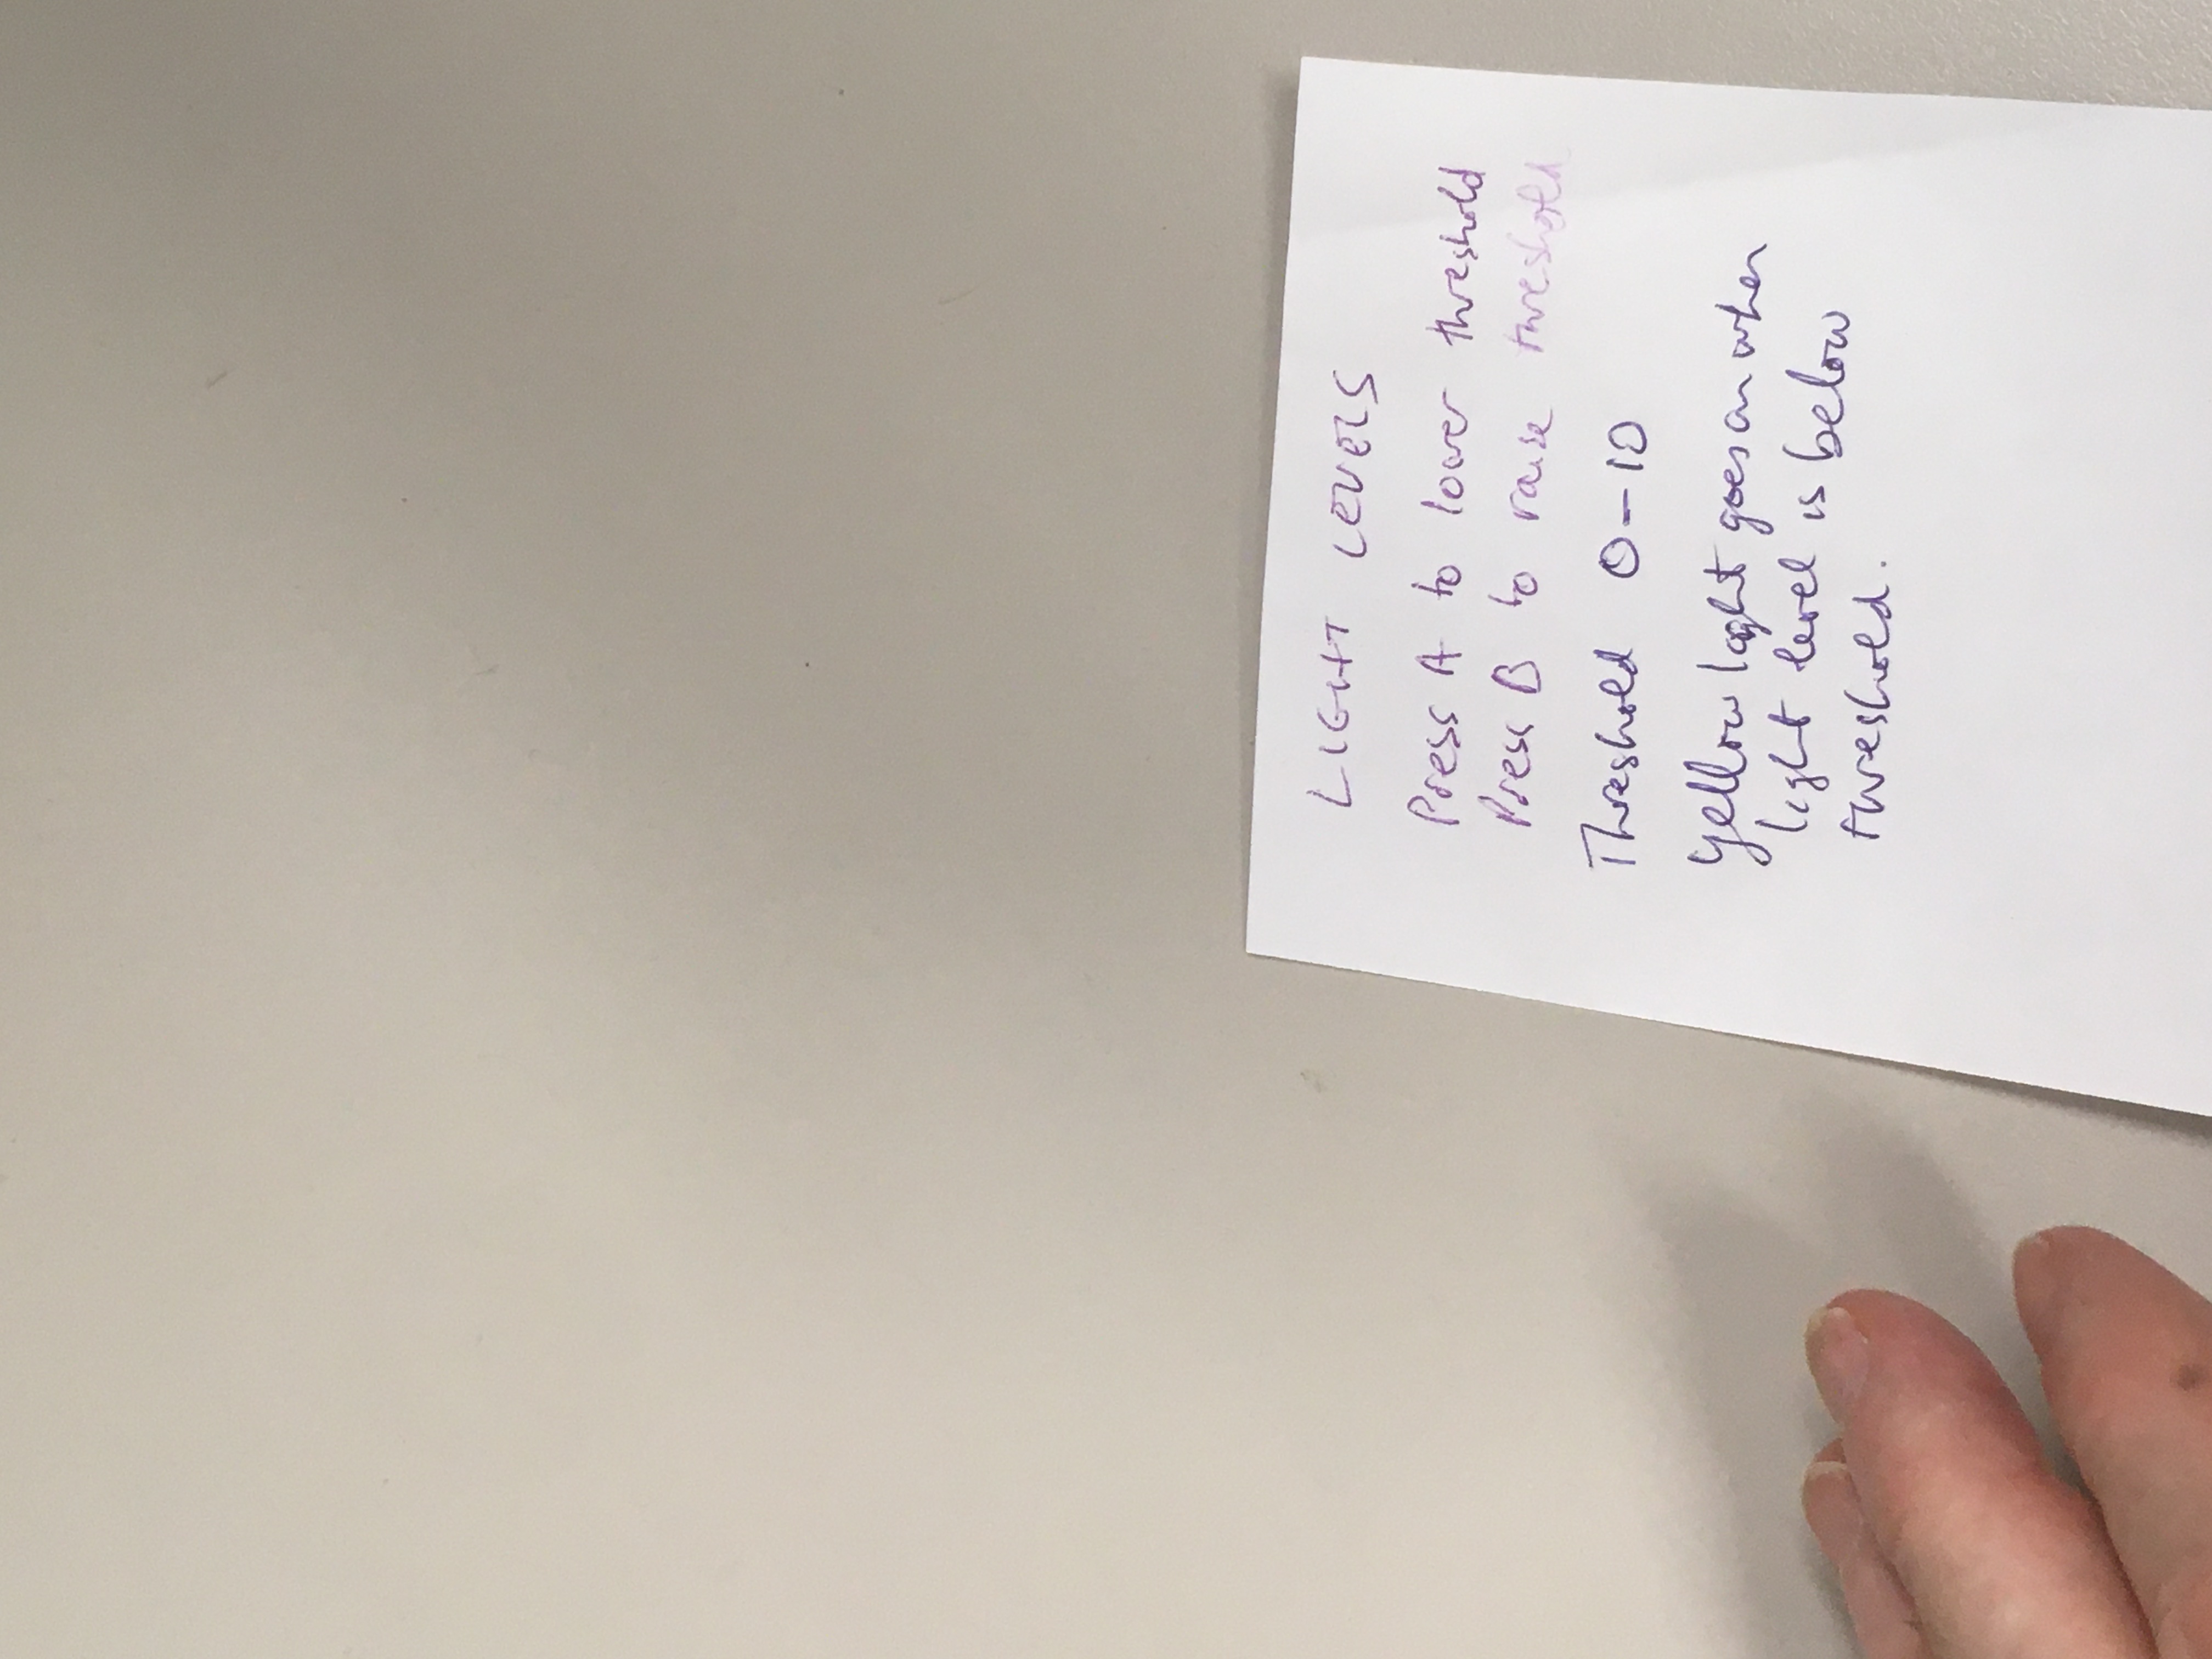 LIGHT LEVELS
Press A to lower threshold
Press B to raise threshold
Threshold 0-10
Yellow light goes on when
light level is below
threshold.